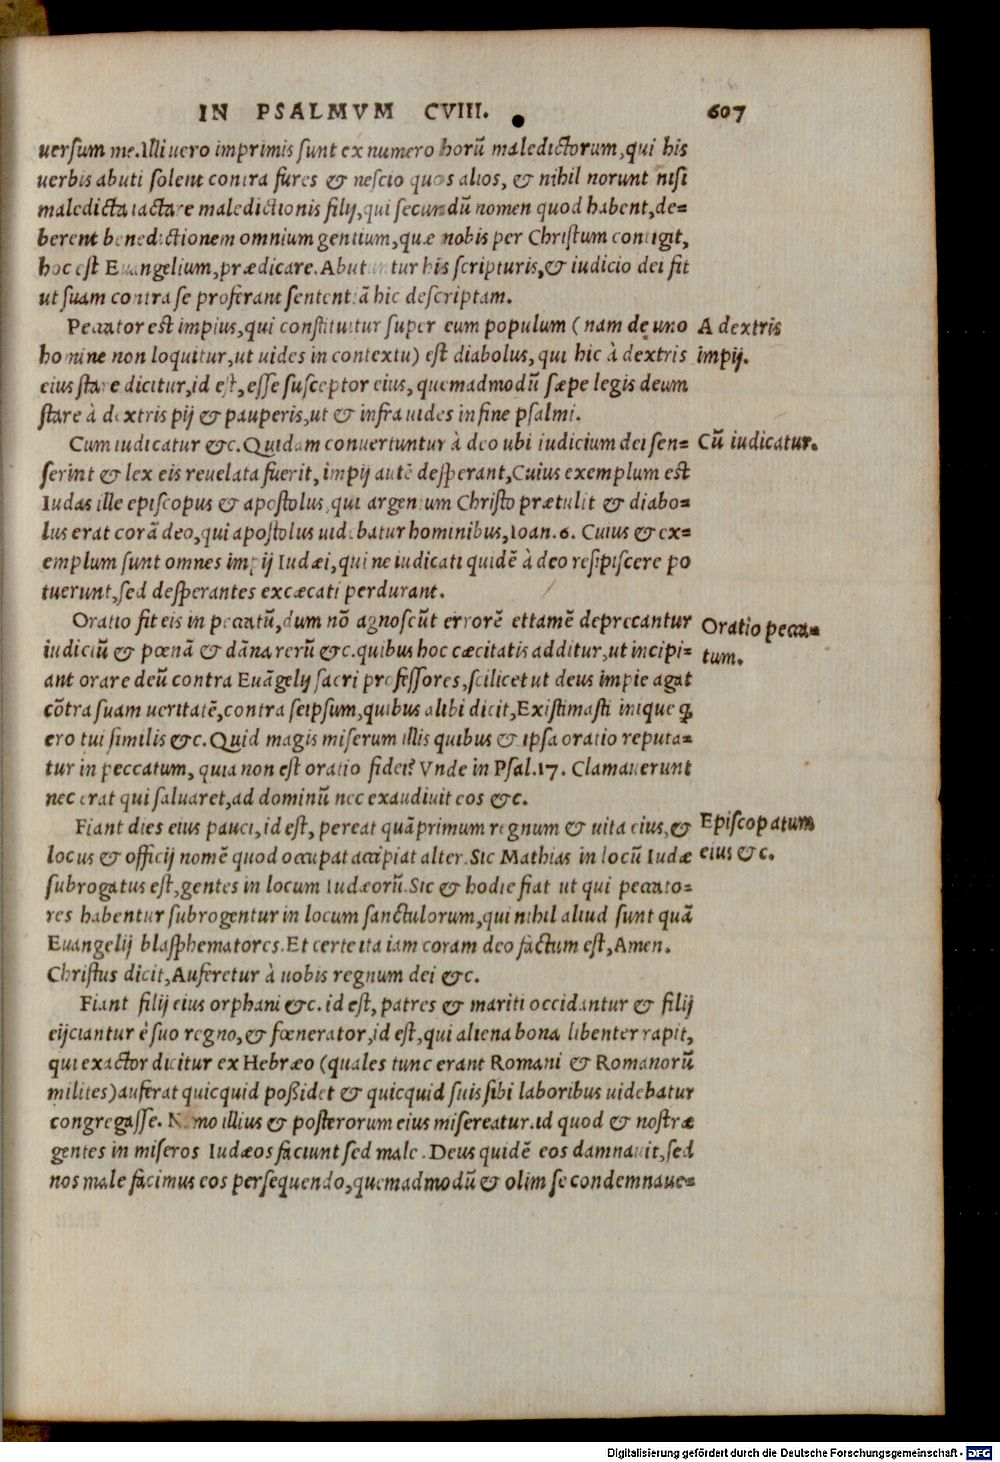 IN PSALMVM CVIII. 607
uersum me. Illi uero imprimis sunt ex numero horū maledictorum, qui his
uerbis abuti solent contra fures & nescio quos alios, & nihil norunt nisi
maledicta iactare maledictionis filij, qui secundū nomen quod habent, de=
berent benedictionem omnium gentium, quæ nobis per Christum contigit,
hoc est Euangelium, prædicare. Abutuntur his scripturis, & iudicio dei fit
ut suam contra se proferant sententiā hic descriptam.
Peccator est impius, qui constituitur super eum populum (nam de uno
A dextris
homine non loquitur, ut uides in contextu) est diabolus, qui hic à dextris
impij.
eius stare dicitur, id est, esse susceptor eius, quemadmodū sæpe legis deum
stare à dextris pij & pauperis, ut & infra uides in fine psalmi.
Cum iudicatur &c. Quidam conuertuntur à deo ubi iudicium dei sen=
Cū iudicatur.
serint & lex eis reuelata fuerit, impij autē desperant, Cuius exemplum est
Iudas ille episcopus & apostolus, qui argentum Christo prætulit & diabo=
lus erat corā deo, qui apostolus uidebatur hominibus, Ioan. 6. Cuius & ex=
emplum sunt omnes impij Iudæi, qui ne iudicati quidē à deo resipiscere po
tuerunt, sed desperantes excæcati perdurant.
Oratio fit eis in peccatū, dum nō agnoscūt errorē et tamē deprecantur
Oratio pecca=
iudiciū & pœnā & dāna rerū &c. quibus hoc cæcitatis additur, ut incipi=
tum.
ant orare deū contra Euāgelij sacri professores, scilicet ut deus impie agat
cōtra suam ueritatē, contra seipsum, quibus alibi dicit, Existimasti inique ꝙ
ero tui similis &c. Quid magis miserum illis quibus & ipsa oratio reputa=
tur in peccatum, quia non est oratio fidei? Vnde in Psal. 17. Clamauerunt
nec erat qui saluaret, ad dominū nec exaudiuit eos &c.
Fiant dies eius pauci, id est, pereat quāprimum regnum & uita eius, &
Episcopatum
locus & officij nomē quod occupat accipiat alter. Sic Mathias in locū Iudæ
eius &c.
subrogatus est, gentes in locum Iudæorū. Sic & hodie fiat ut qui peccato=
res habentur subrogentur in locum sanctulorum, qui nihil aliud sunt quā
Euangelij blasphematores. Et certe ita iam coram deo factum est, Amen.
Christus dicit, Auferetur à uobis regnum dei &c.
Fiant filij eius orphani &c. id est, patres & mariti occidantur & filij
eijciantur è suo regno, & fœnerator, id est, qui aliena bona libenter rapit,
qui exactor dicitur ex Hebræo (quales tunc erant Romani & Romanorū
milites) auferat quicquid poßidet & quicquid suis sibi laboribus uidebatur
congregasse. Nemo illius & posterorum eius misereatur. id quod & nostræ
gentes in miseros Iudæos faciunt sed male. Deus quidē eos damnauit, sed
nos male facimus eos persequendo, quemadmodū & olim se condemnaue=
Digitalisierung gefördert durch die Deutsche Forschungsgemeinschaft - DFG